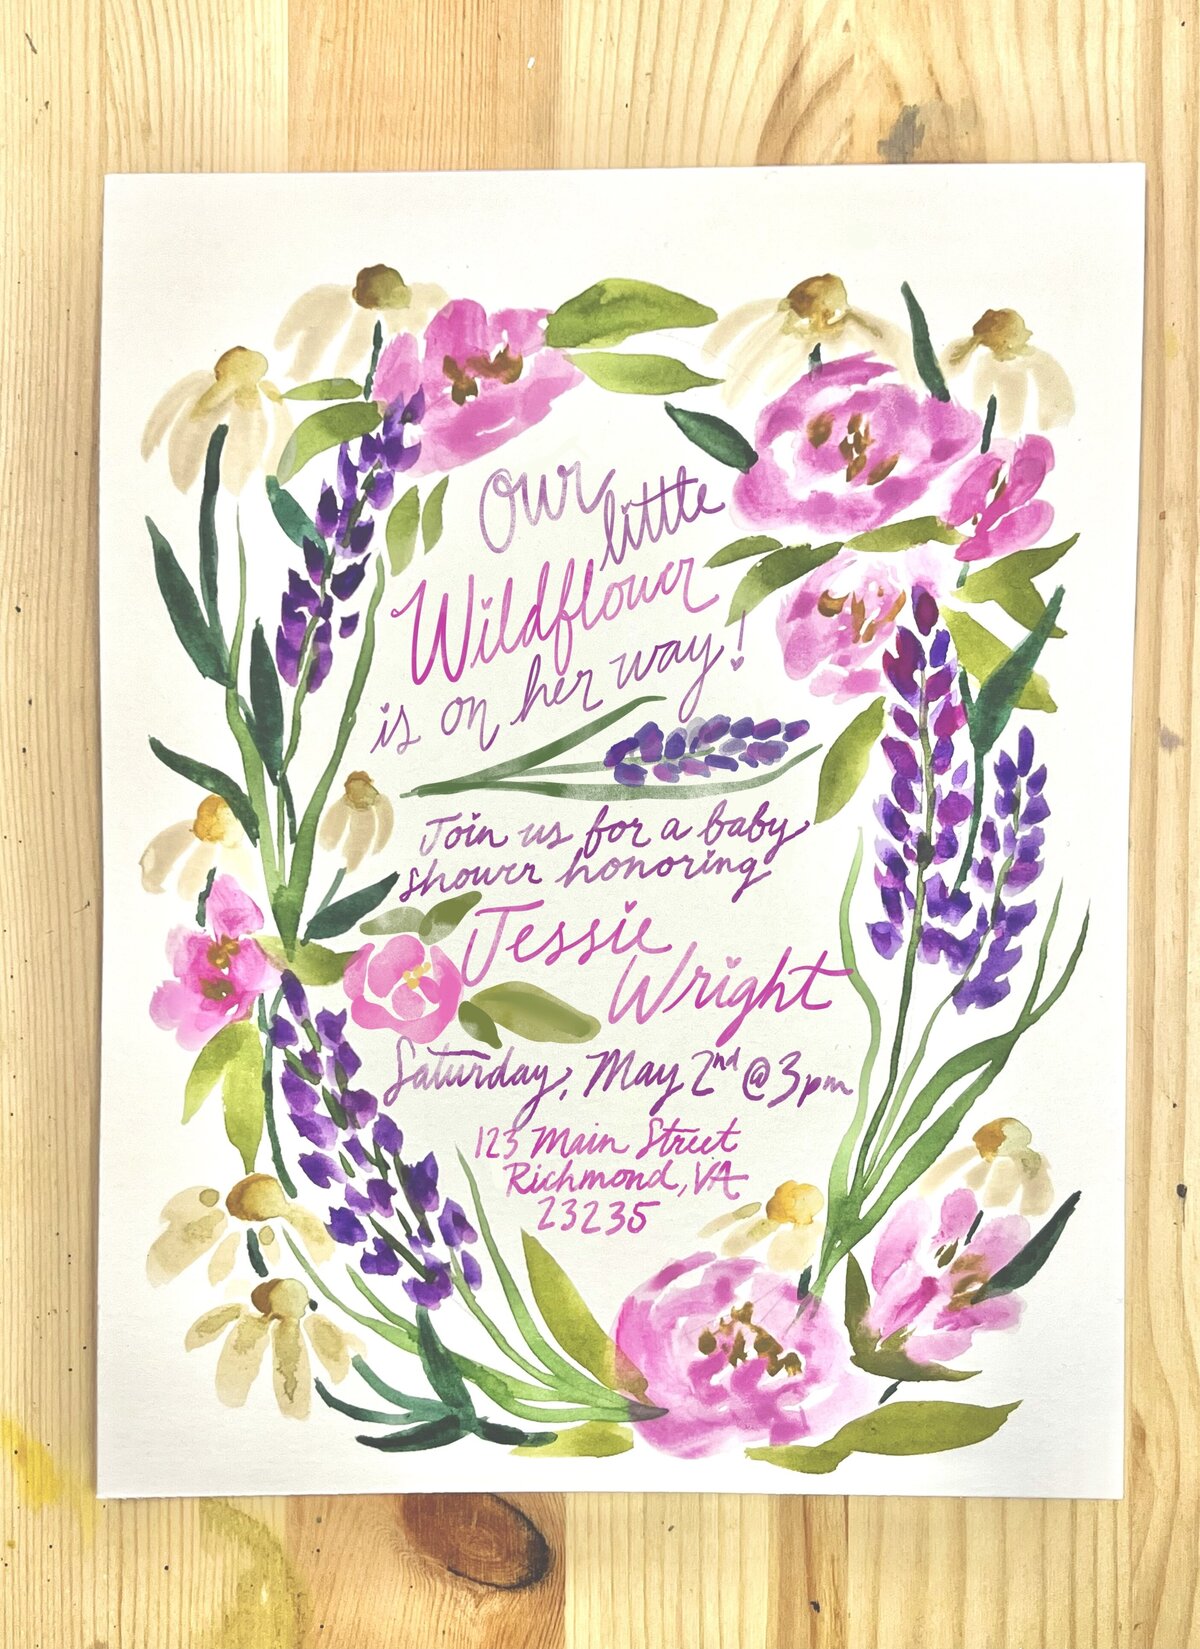 Our little
Wildflower
is on her way!
Join us for a baby
shower honoring
Jessie
Wright
Saturday, May 2nd @ 3pm
123 Main Street
Richmond, VA
23235